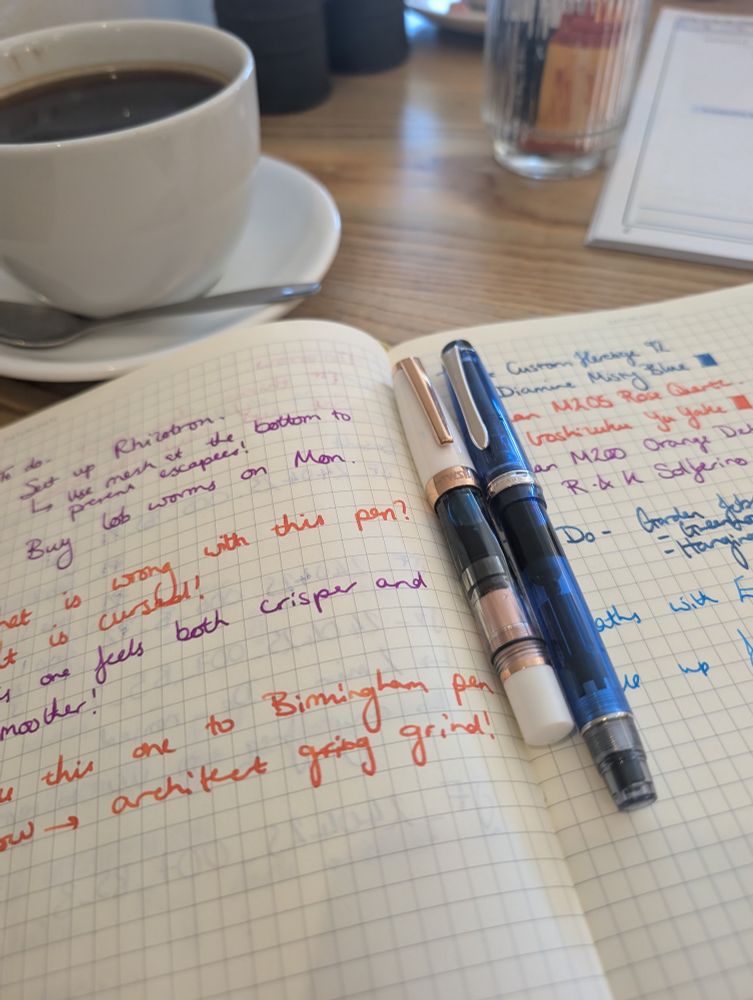 To do.
Set up Rhizotron.
↳ Use mesh at the bottom to
prevent escapees!
Buy lob worms on Mon.
is wrong with this pen?
it is cursed!
one feels both crisper and
smoother!
this one to Birmingham pen
→ architect gring grind!
Custom Heritage 92
Diamine Misty Blue
M205 Rose Quartz.
Iroshizuku Yu Yake
M200 Orange
R & K Solferino
Do - Garden
with
up